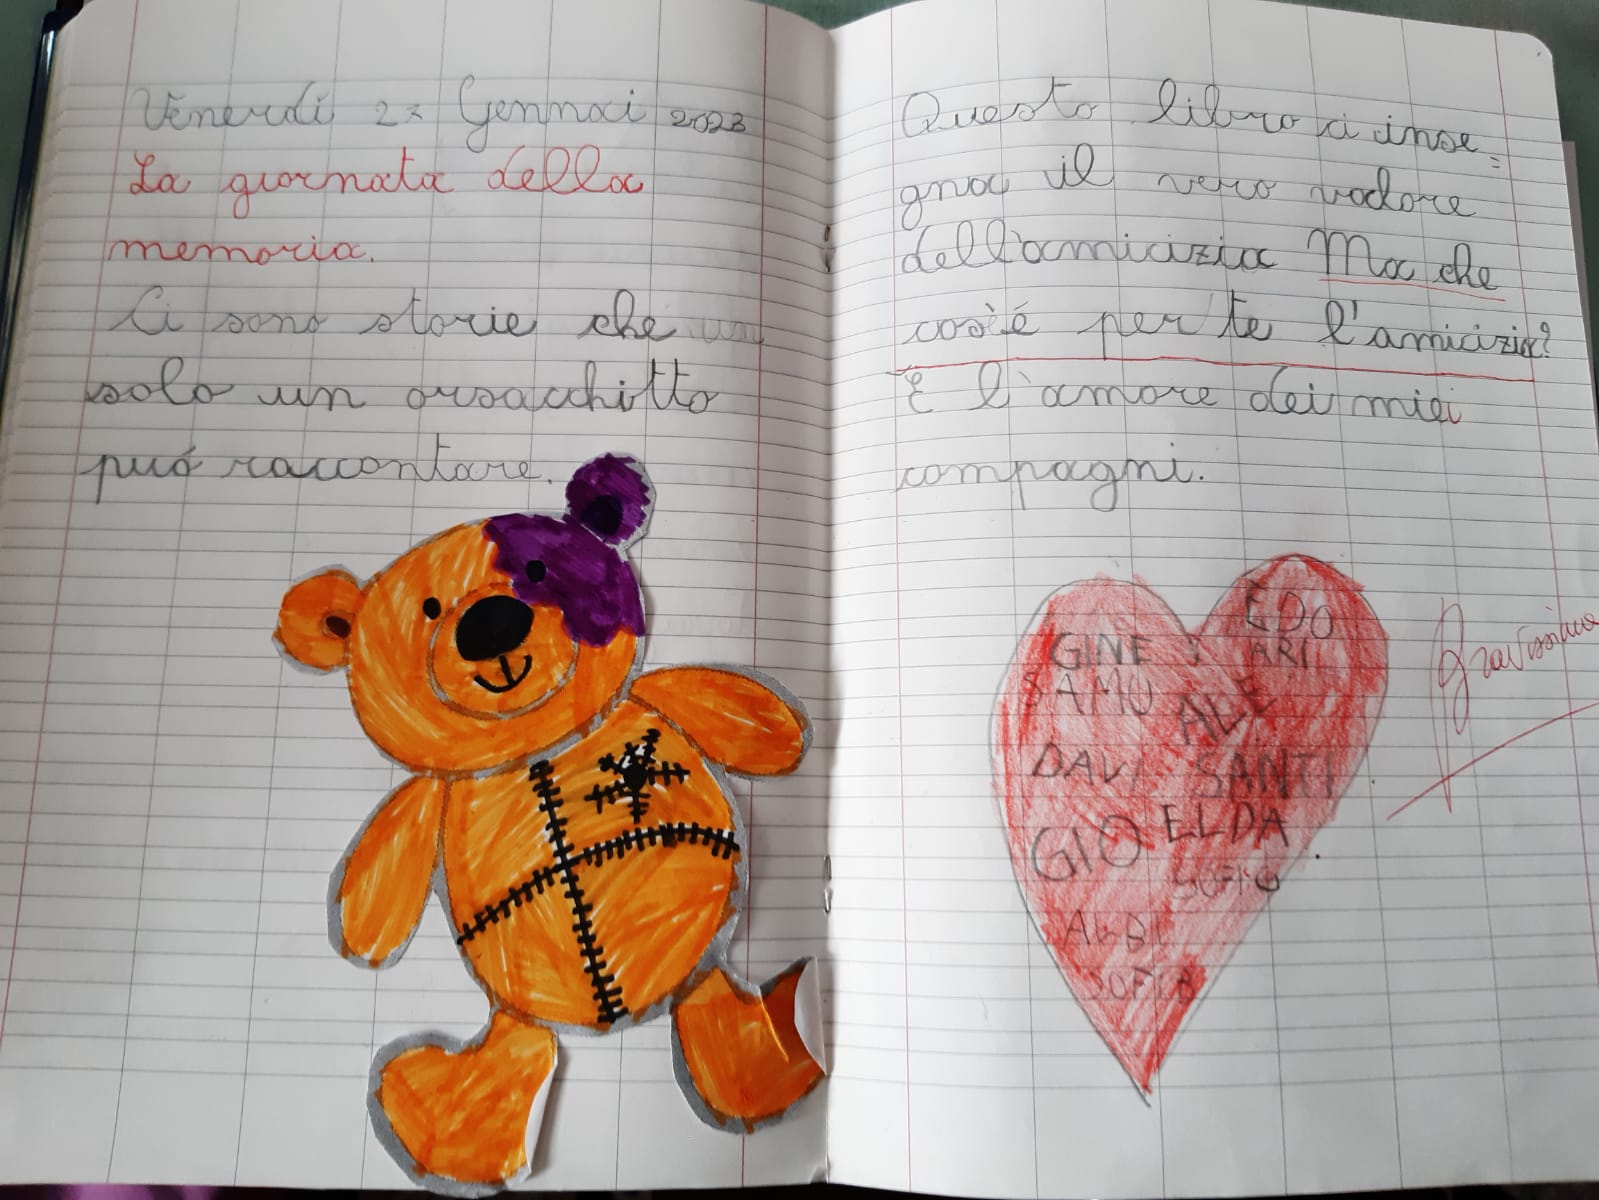 Venerdí 27 Gennaci 2023
La giornata della
memoria.
Ci sono storie che un
solo un orsacchitto
puó raccontare.
Questo libro ci inse=
gna il vero valore
dell'amicizia Ma che
cos'é per te l'amicizia?
E l'amore dei miei
compagni.
EDO
GINE ARI
SAMU ALE
DAVI SANTI
GIO ELDA
ALBI
SOFI B
Bravissima